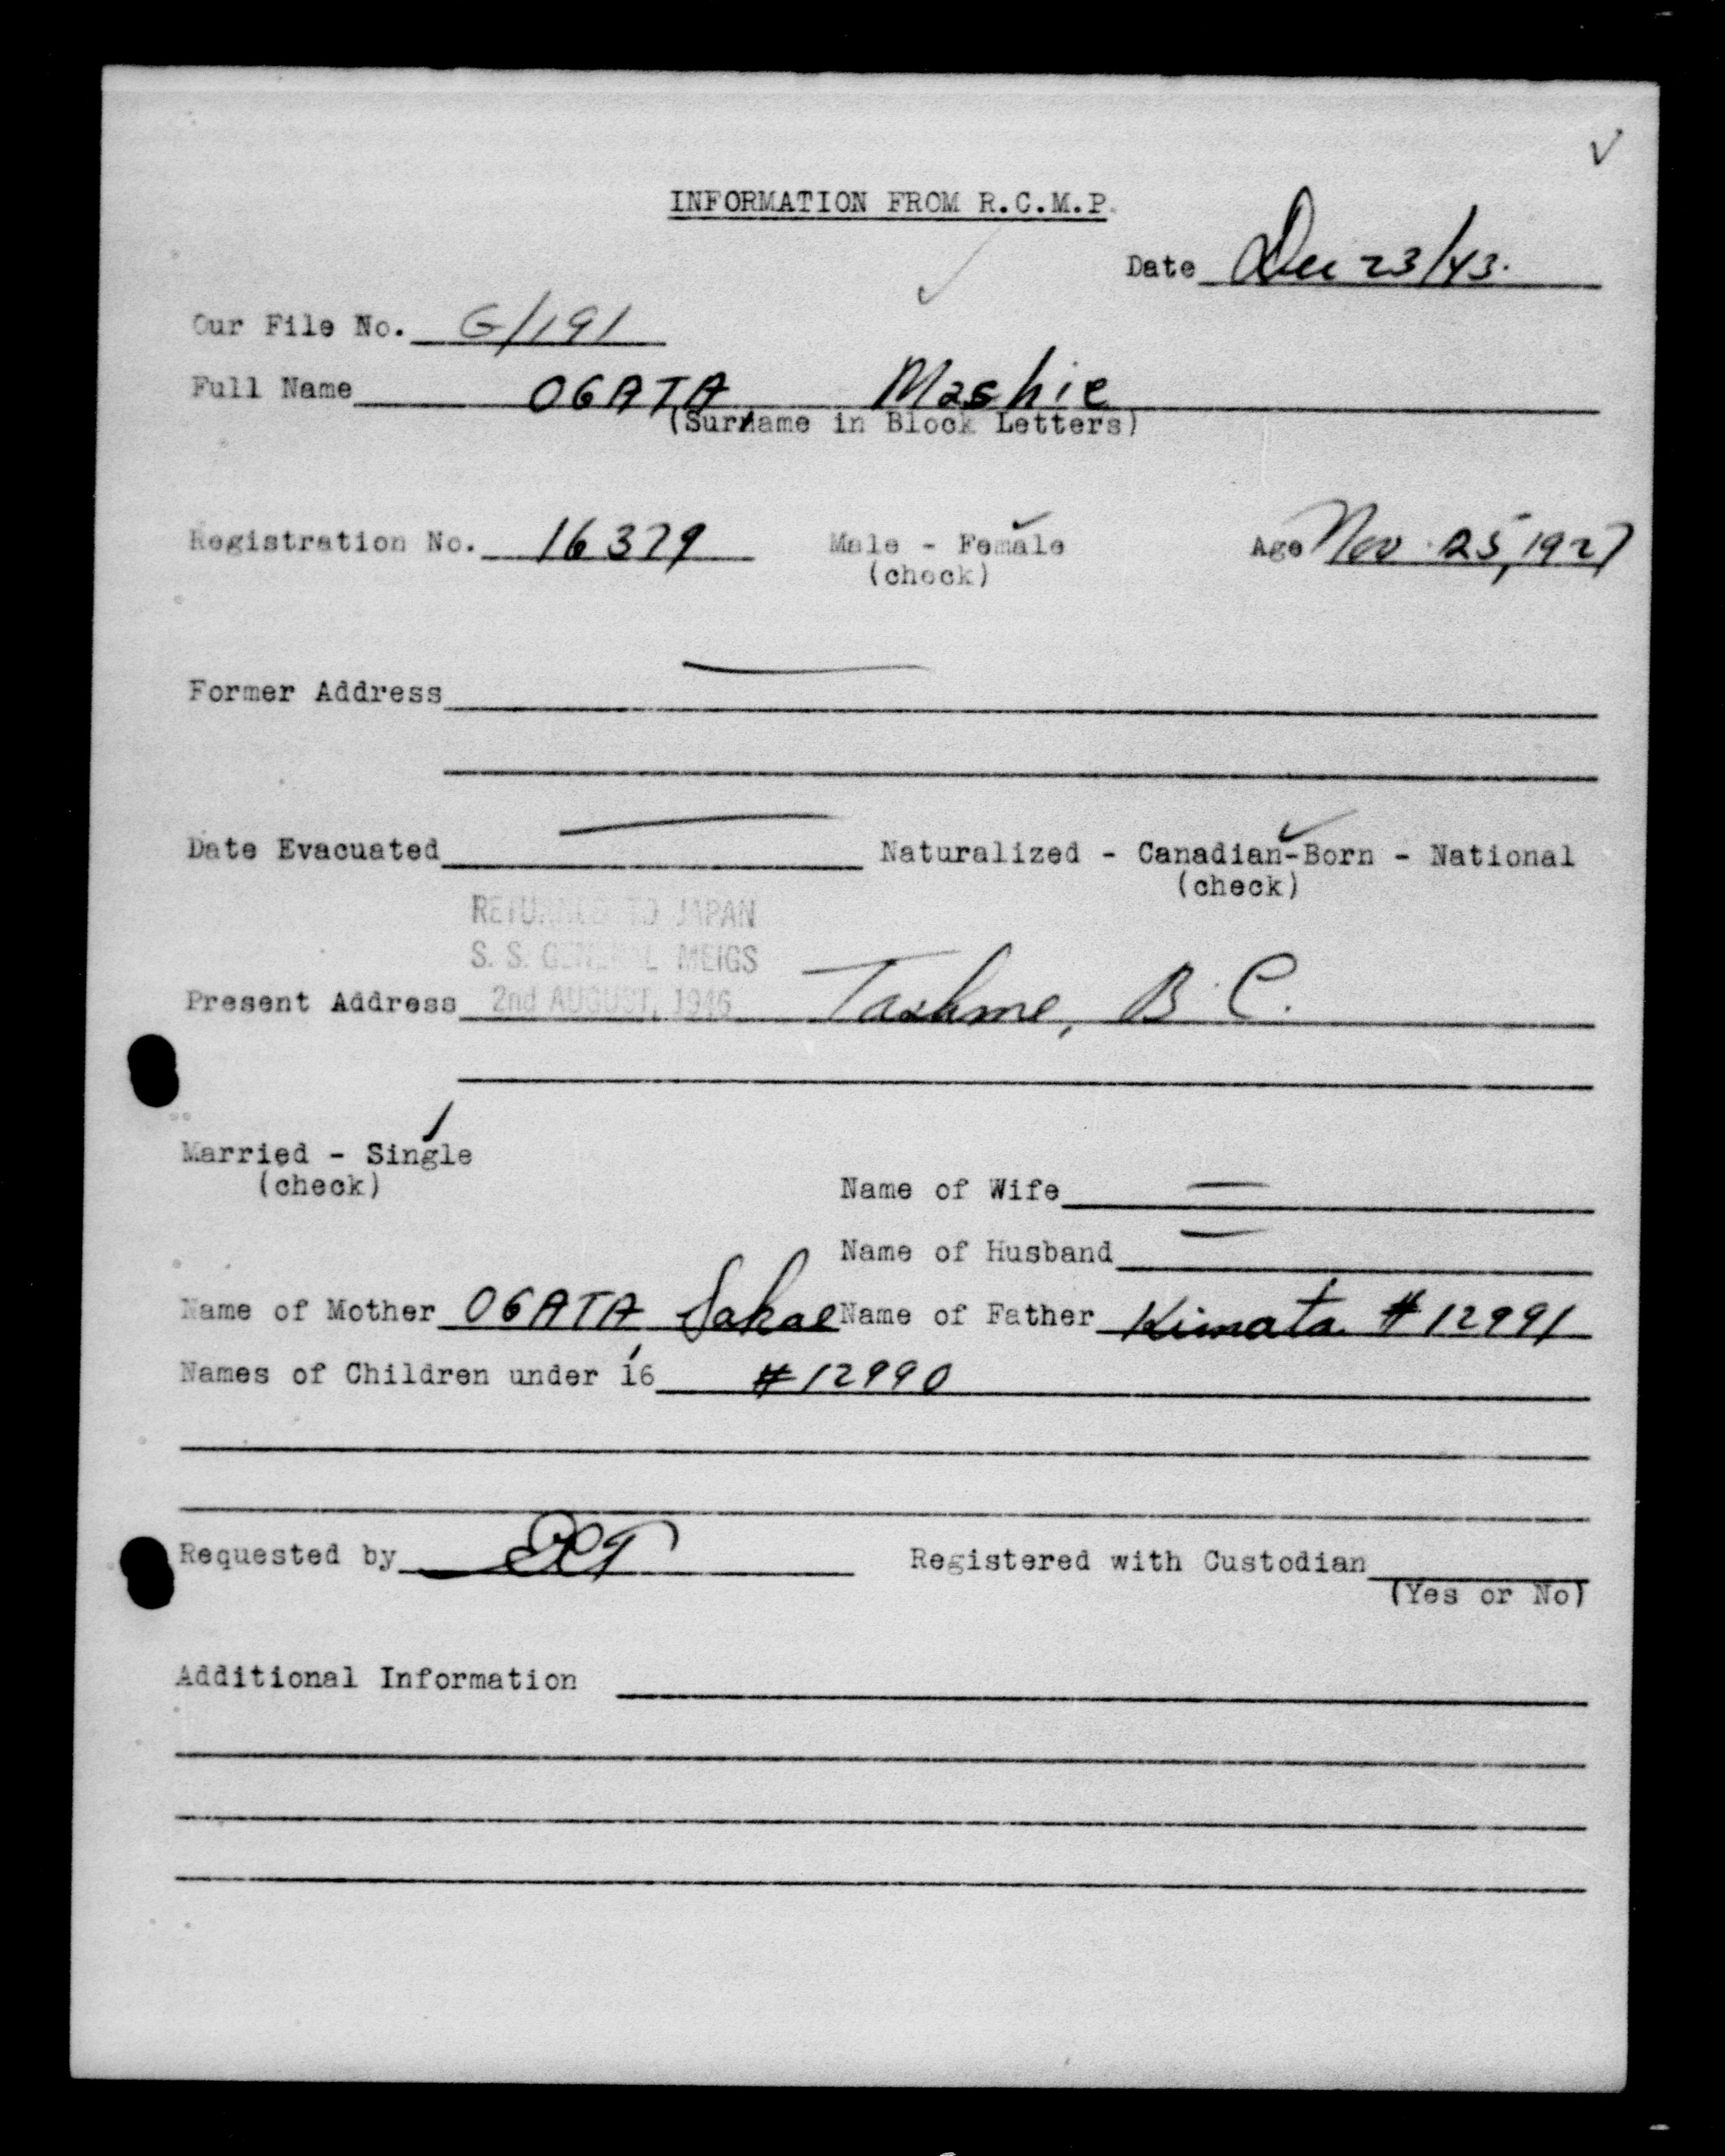 ✓
INFORMATION FROM R.C.M.P.
Date Dec 23/43.
Our File No. G/191
Full Name OGATA Mashie
(Surname in Block Letters)
Registration No. 16379 Male - Female Age Nov. 25, 1927
(check)
Former Address
Date Evacuated Naturalized - Canadian-Born - National
(check)
RETURNED TO JAPAN
S. S. GENERAL MEIGS
2nd AUGUST, 1946
Present Address Tashme, B.C.
Married - Single
(check)
Name of Wife —
Name of Husband —
Name of Mother OGATA, Sakae Name of Father Kimata #12991
Names of Children under 16 #12990
Requested by Registered with Custodian
(Yes or No)
Additional Information